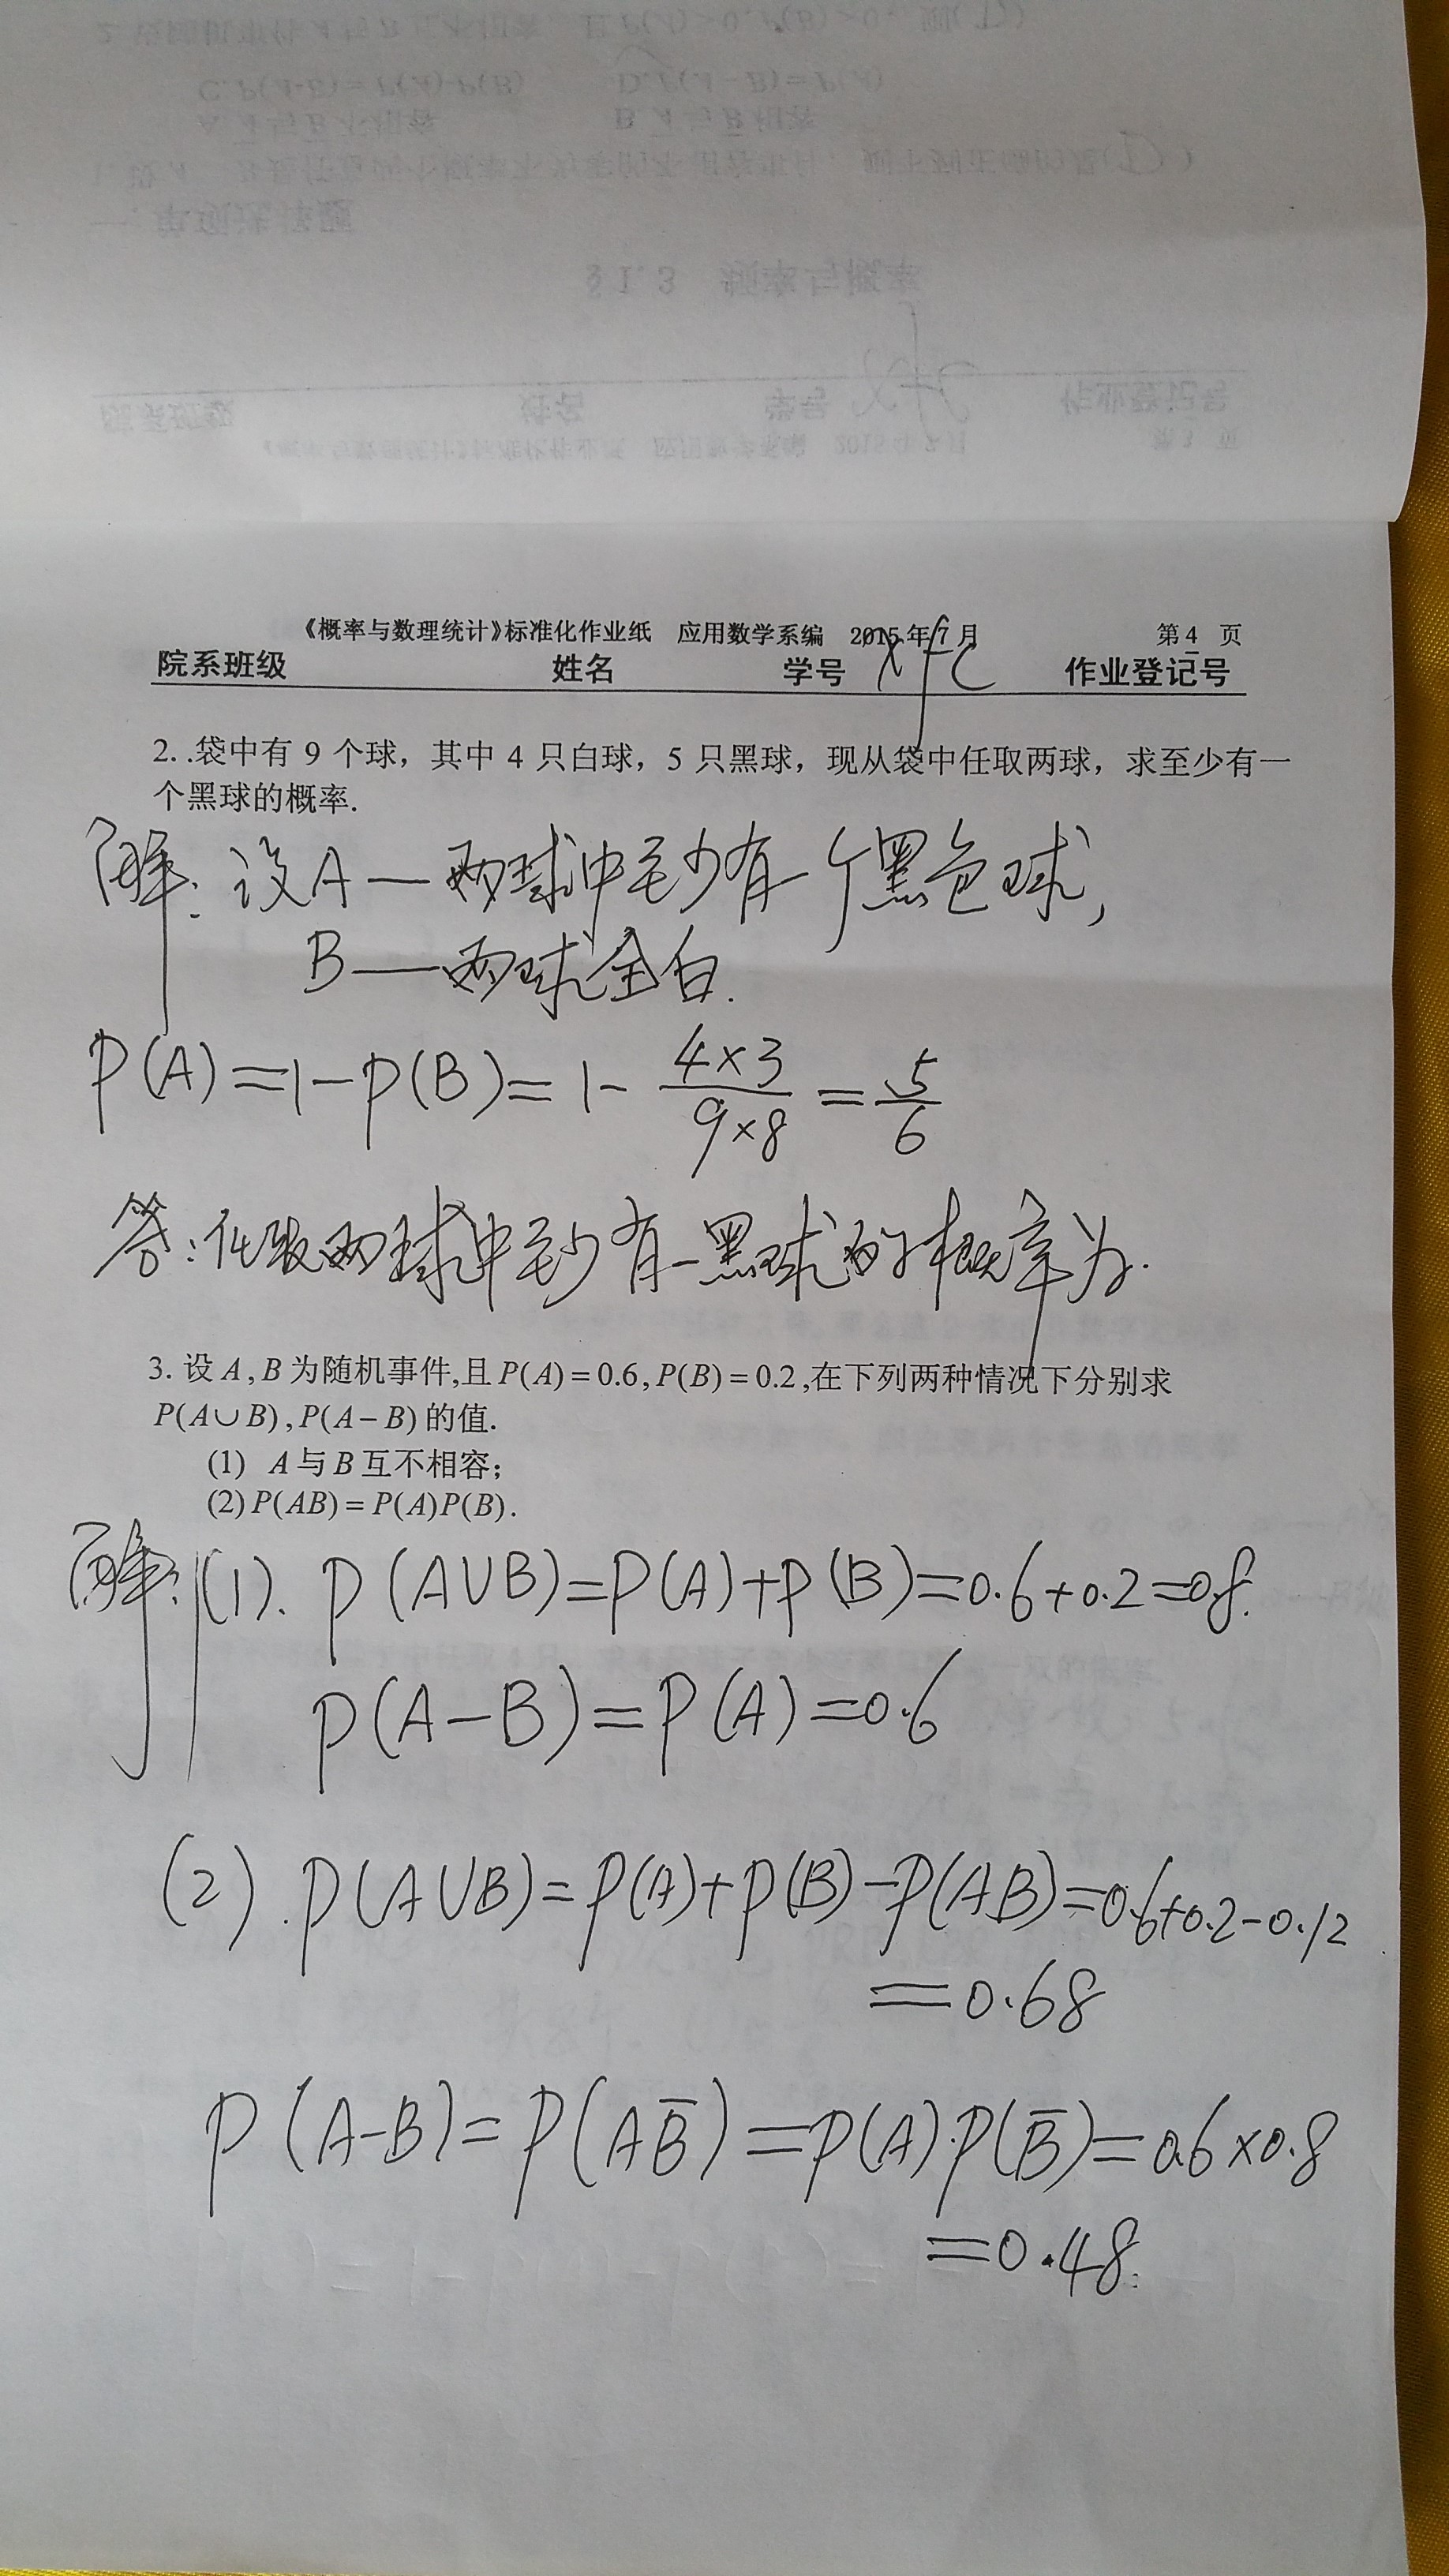 《概率与数理统计》标准化作业纸 应用数学系编 2015年7月 第4页
院系班级 姓名 学号 xfc 作业登记号
2. .袋中有 9 个球，其中 4 只白球，5 只黑球，现从袋中任取两球，求至少有一
个黑球的概率.
解：设A—两球中至少有一个黑色球，
B—两球全白.
P(A)=1-P(B)=1-\frac{4×3}{9×8}=\frac{5}{6}
答：任取两球中至少有一黑球的概率为.
3. 设 A , B 为随机事件,且 P(A) = 0.6 , P(B) = 0.2 ,在下列两种情况下分别求
P(A∪B) , P(A−B) 的值.
(1) A 与 B 互不相容；
(2) P(AB) = P(A)P(B).
解：(1). P(A∪B)=P(A)+P(B)=0.6+0.2=0.8.
P(A-B)=P(A)=0.6
(2). P(A∪B)=P(A)+P(B)-P(AB)=0.6+0.2-0.12
=0.68
P(A-B)=P(AB̄)=P(A)·P(B̄)=0.6×0.8
=0.48.